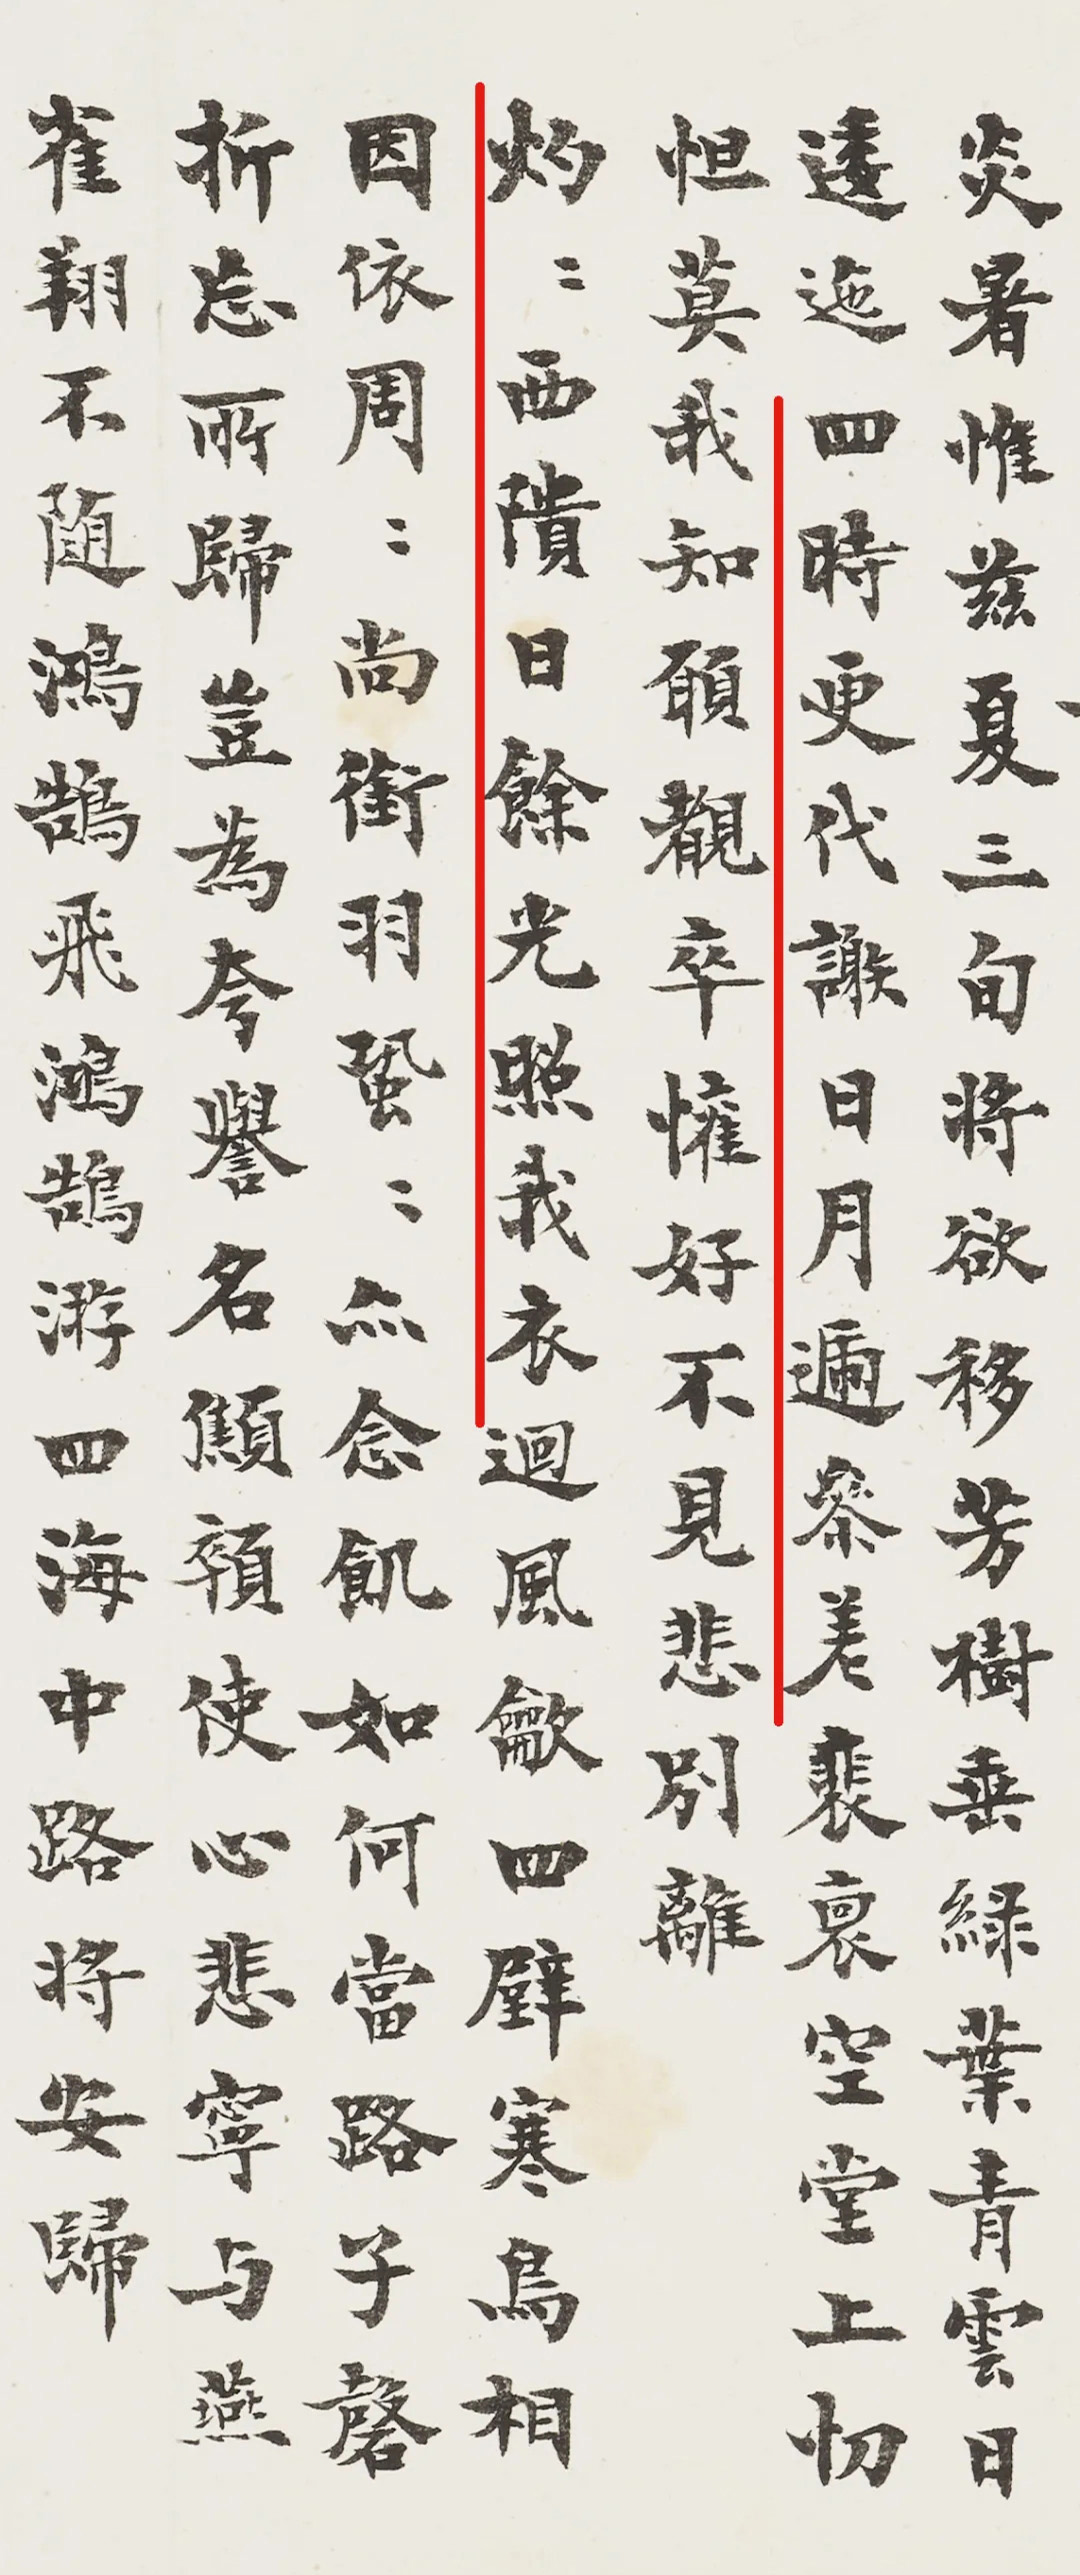 炎暑惟茲夏三旬将欲移芳樹垂緑葉青雲日
逶迤四時更代謝日月遞叅差裴裒空堂上忉
怛莫我知願覩卒懽好不見悲別離
灼〻西隤日餘光照我衣迴風歘四壁寒鳥相
因依周〻尚銜羽蛩〻亦念飢如何當路子磬
折忘所歸豈為夸譽名顦顇使心悲寧与燕
雀翔不随鴻鵠飛鴻鵠游四海中路将安歸